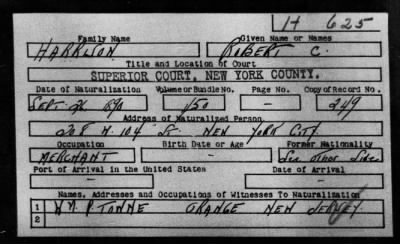 H 625
Family Name Given Name or Names
HARRISON ROBERT C.
Title and Location of Court
SUPERIOR COURT, NEW YORK COUNTY.
Date of Naturalization Volume or Bundle No. Page No. Copy of Record No.
Sept. 26 1890 150 - 249
Address of Naturalized Person
208 W. 104 St. NEW YORK CITY
Occupation Birth Date or Age Former Nationality
MERCHANT - See Other Side
Port of Arrival in the United States Date of Arrival
- -
Names, Addresses and Occupations of Witnesses To Naturalization
1 WM. P. TOWNE ORANGE NEW JERSEY
2